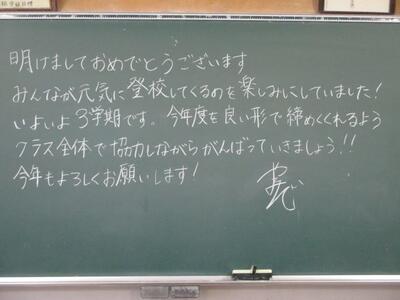 明けましておめでとうございます
みんなが元気に登校してくるのを楽しみにしていました!
いよいよ3学期です。今年度を良い形で締めくくれるよう
クラス全体で協力しながらがんばっていきましょう!!
今年もよろしくお願いします!